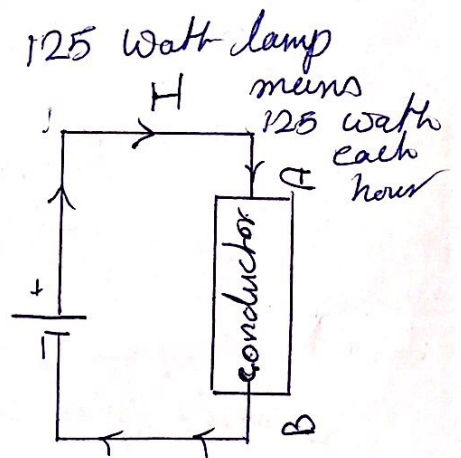 125 Watt lamp
means
125 watts
each
hour
H
A
conductor
+
-
B